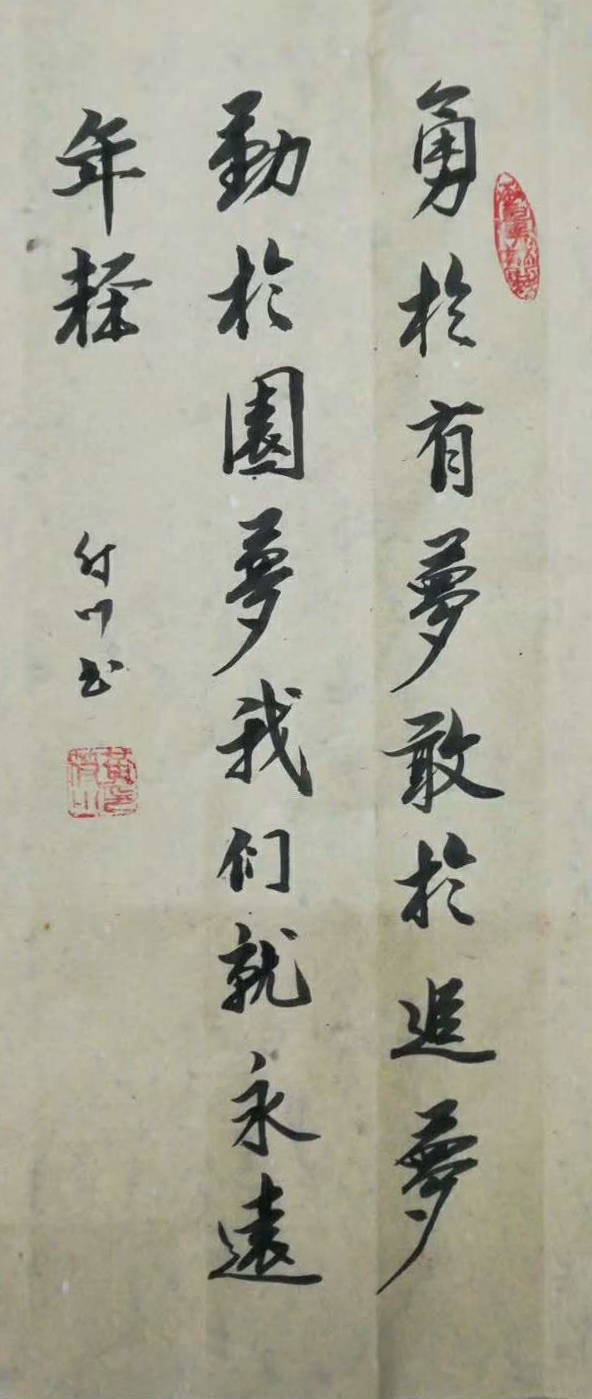 勇於有夢敢於追夢
勤於園夢我们就永遠
年轻
书